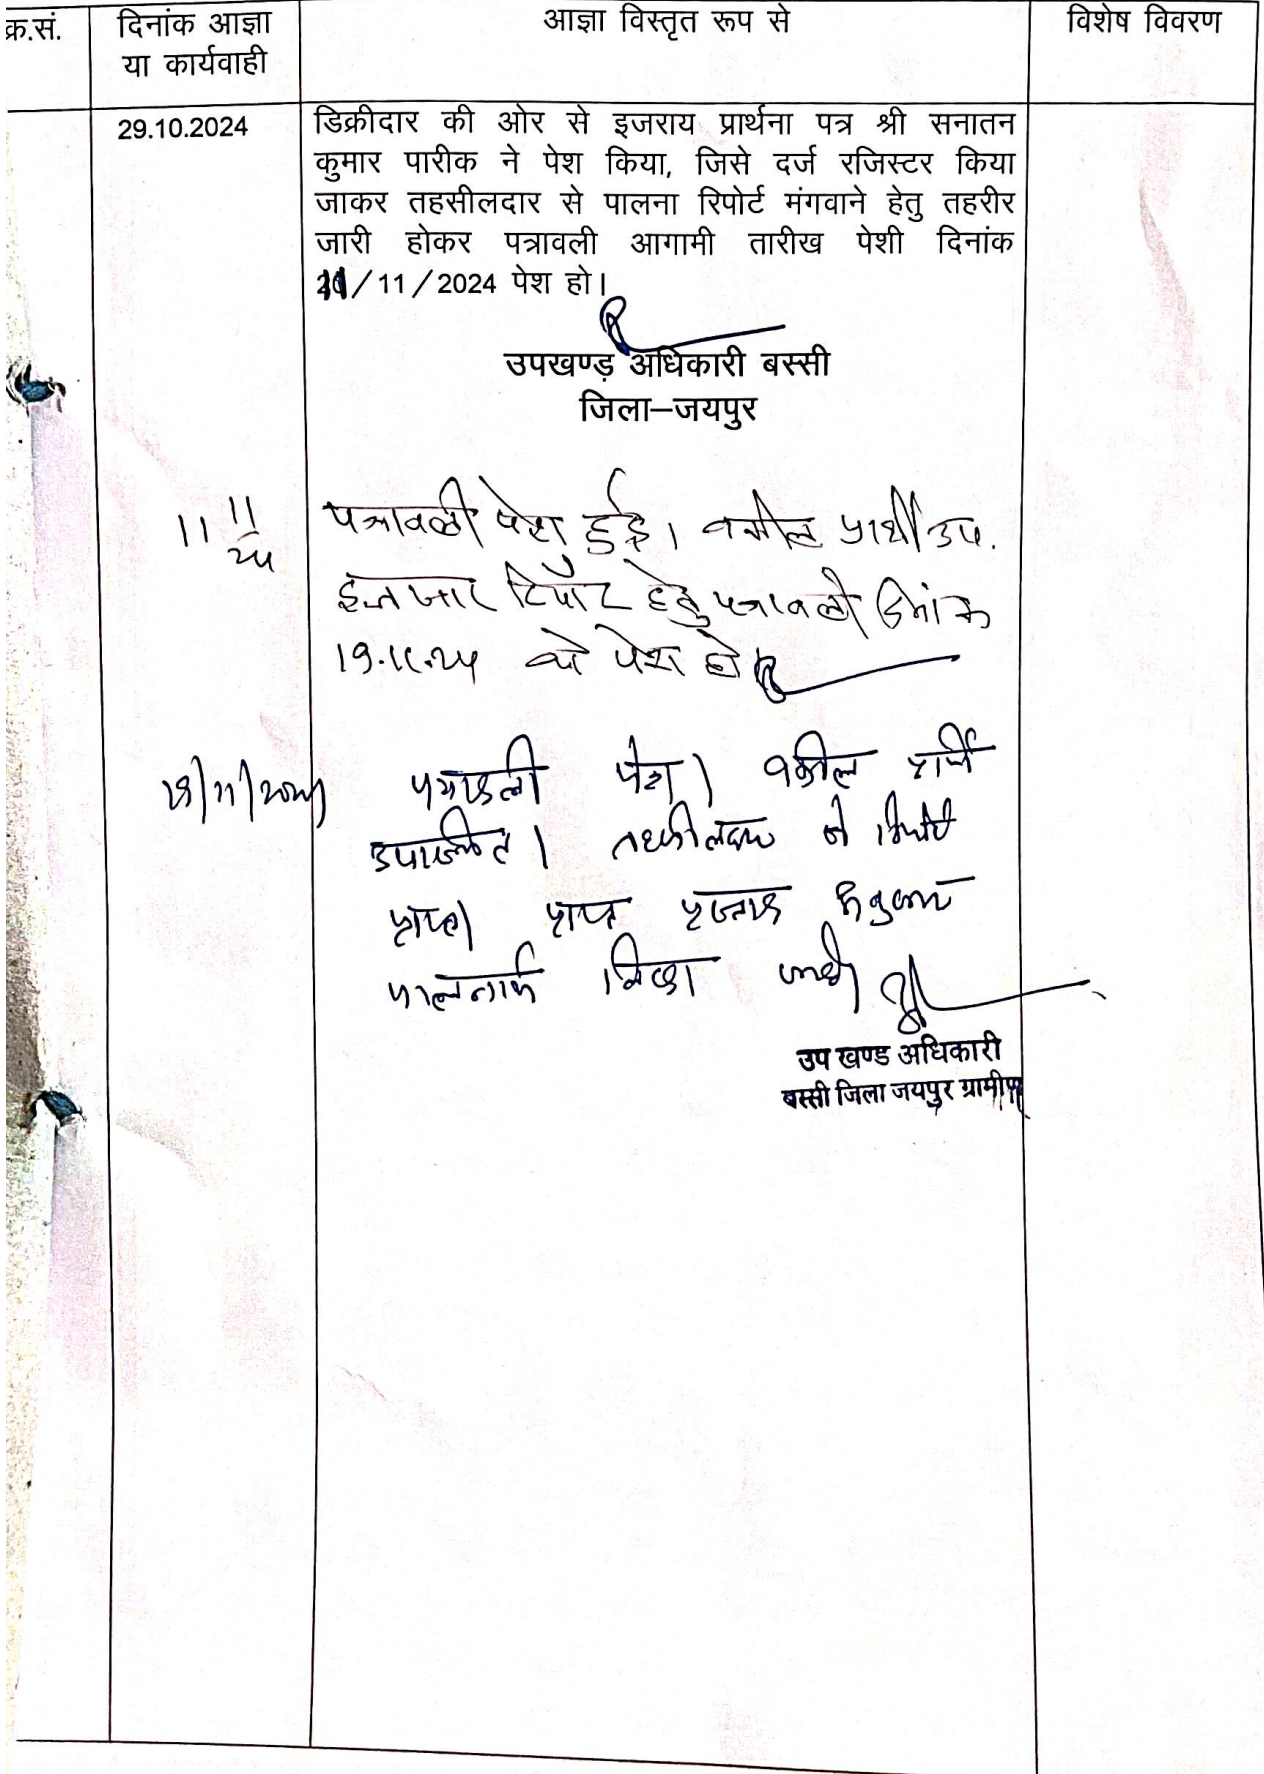 क्र.सं.
दिनांक आज्ञा
या कार्यवाही
आज्ञा विस्तृत रूप से
विशेष विवरण
29.10.2024
डिक्रीदार की ओर से इजराय प्रार्थना पत्र श्री सनातन
कुमार पारीक ने पेश किया, जिसे दर्ज रजिस्टर किया
जाकर तहसीलदार से पालना रिपोर्ट मंगवाने हेतु तहरीर
जारी होकर पत्रावली आगामी तारीख पेशी दिनांक
11/11/2024 पेश हो।
उपखण्ड़ अधिकारी बस्सी
जिला–जयपुर
11 11
24
पत्रावली पेश हुई। वकील प्रार्थी उप.
इन्तजार रिपोर्ट हेतु पत्रावली दिनांक
19.11.24 को पेश हो
पत्रावली पेश। वकील प्रार्थी
उपस्थित। तहसीलदार से रिपोर्ट
प्राप्त। प्राप्त प्रस्ताव
पालनार्थ लिखा जावे।
उप खण्ड अधिकारी
बस्सी जिला जयपुर ग्रामीण